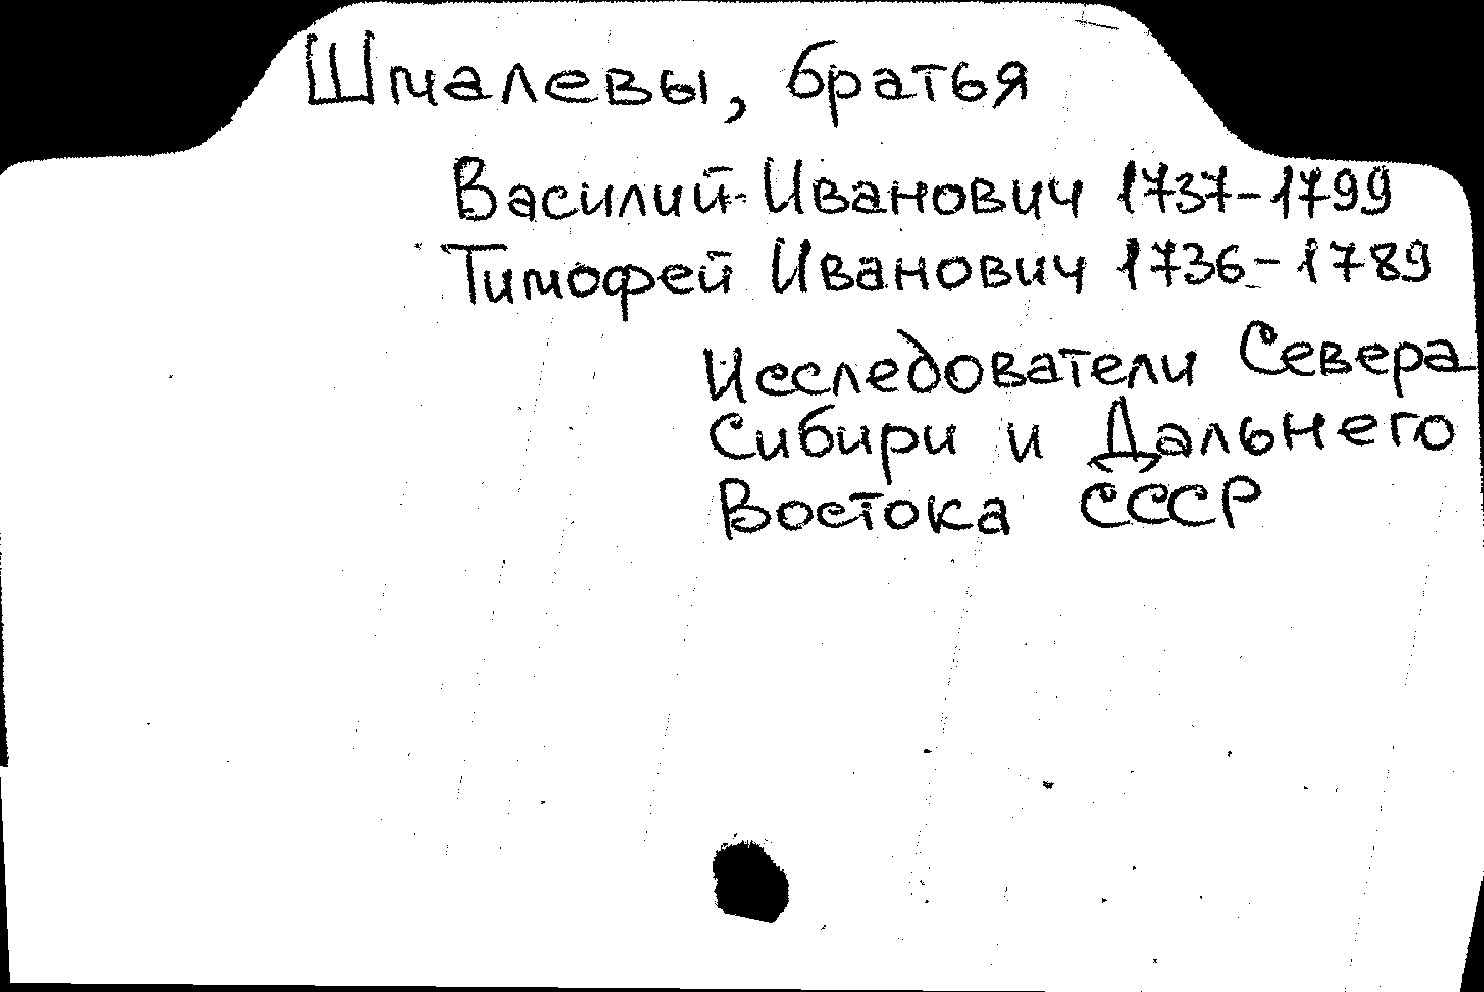 Шмалевы, братья
Василий Иванович 1737-1799
Тимофей Иванович 1736-1789
Исследователи Севера
Сибири и Дальнего
Востока СССР